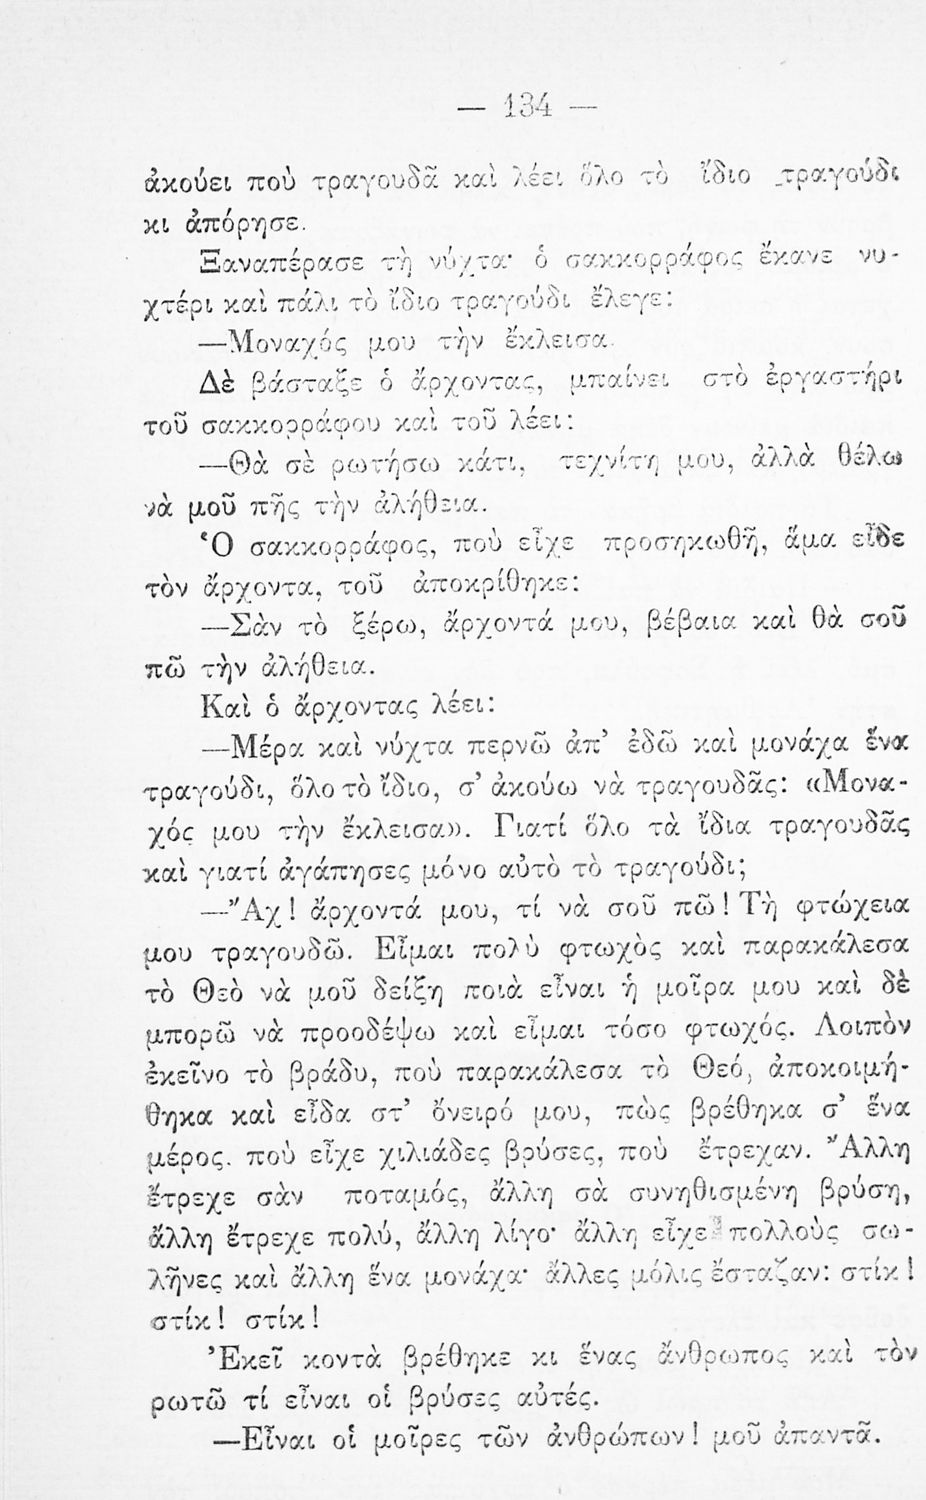 — 134 —
ἀκούει ποὺ τραγουδᾶ καὶ λέει ὅλο τὸ ἴδιο τραγούδι
κι ἀπόρησε.
Ξαναπέρασε τὴ νύχτα· ὁ σακκορράφος ἔκανε νυ-
χτέρι καὶ πάλι τὸ ἴδιο τραγούδι ἔλεγε:
—Μοναχός μου τὴν ἔκλεισα.
Δὲ βάσταξε ὁ ἄρχοντας, μπαίνει στὸ ἐργαστήρι
τοῦ σακκορράφου καὶ τοῦ λέει:
—Θὰ σὲ ρωτήσω κάτι, τεχνίτη μου, ἀλλὰ θέλω
νὰ μοῦ πῆς τὴν ἀλήθεια.
Ὁ σακκορράφος, ποὺ εἶχε προσηκωθῆ, ἅμα εἶδε
τὸν ἄρχοντα, τοῦ ἀποκρίθηκε:
—Σὰν τὸ ξέρω, ἄρχοντά μου, βέβαια καὶ θὰ σοῦ
πῶ τὴν ἀλήθεια.
Καὶ ὁ ἄρχοντας λέει:
—Μέρα καὶ νύχτα περνῶ ἀπ’ ἐδῶ καὶ μονάχα ἕνα
τραγούδι, ὅλο τὸ ἴδιο, σ’ ἀκούω νὰ τραγουδᾶς: «Μονα-
χός μου τὴν ἔκλεισα». Γιατί ὅλο τὰ ἴδια τραγουδᾶς
καὶ γιατί ἀγάπησες μόνο αὐτὸ τὸ τραγούδι;
—Ἄχ! ἄρχοντά μου, τί νὰ σοῦ πῶ! Τὴ φτώχεια
μου τραγουδῶ. Εἶμαι πολὺ φτωχὸς καὶ παρακάλεσα
τὸ Θεὸ νὰ μοῦ δείξη ποιὰ εἶναι ἡ μοῖρα μου καὶ δὲ
μπορῶ νὰ προοδέψω καὶ εἶμαι τόσο φτωχός. Λοιπὸν
ἐκεῖνο τὸ βράδυ, ποὺ παρακάλεσα τὸ Θεό, ἀποκοιμή-
θηκα καὶ εἶδα στ’ ὄνειρό μου, πὼς βρέθηκα σ’ ἕνα
μέρος. ποὺ εἶχε χιλιάδες βρύσες, ποὺ ἔτρεχαν. Ἄλλη
ἔτρεχε σὰν ποταμός, ἄλλη σὰ συνηθισμένη βρύση,
ἄλλη ἔτρεχε πολύ, ἄλλη λίγο· ἄλλη εἶχε πολλοὺς σω-
λῆνες καὶ ἄλλη ἕνα μονάχα· ἄλλες μόλις ἔσταζαν: στίκ!
στίκ! στίκ!
Ἐκεῖ κοντὰ βρέθηκε κι ἕνας ἄνθρωπος καὶ τὸν
ρωτῶ τί εἶναι οἱ βρύσες αὐτές.
—Εἶναι οἱ μοῖρες τῶν ἀνθρώπων! μοῦ ἀπαντᾶ.